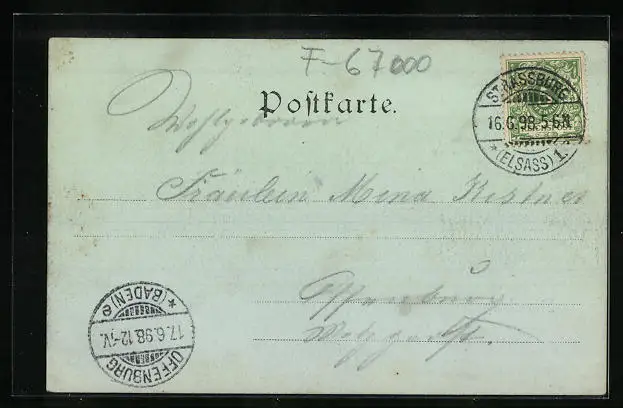 F-67000
Postkarte.
STRASSBURG
16.6.98.5-6N.
*(ELSASS) 1.
Wohlgeboren
Fräulein Mina Kestner
Offenburg
OFFENBURG
17.6.98.12-1V.
*(BADEN) e